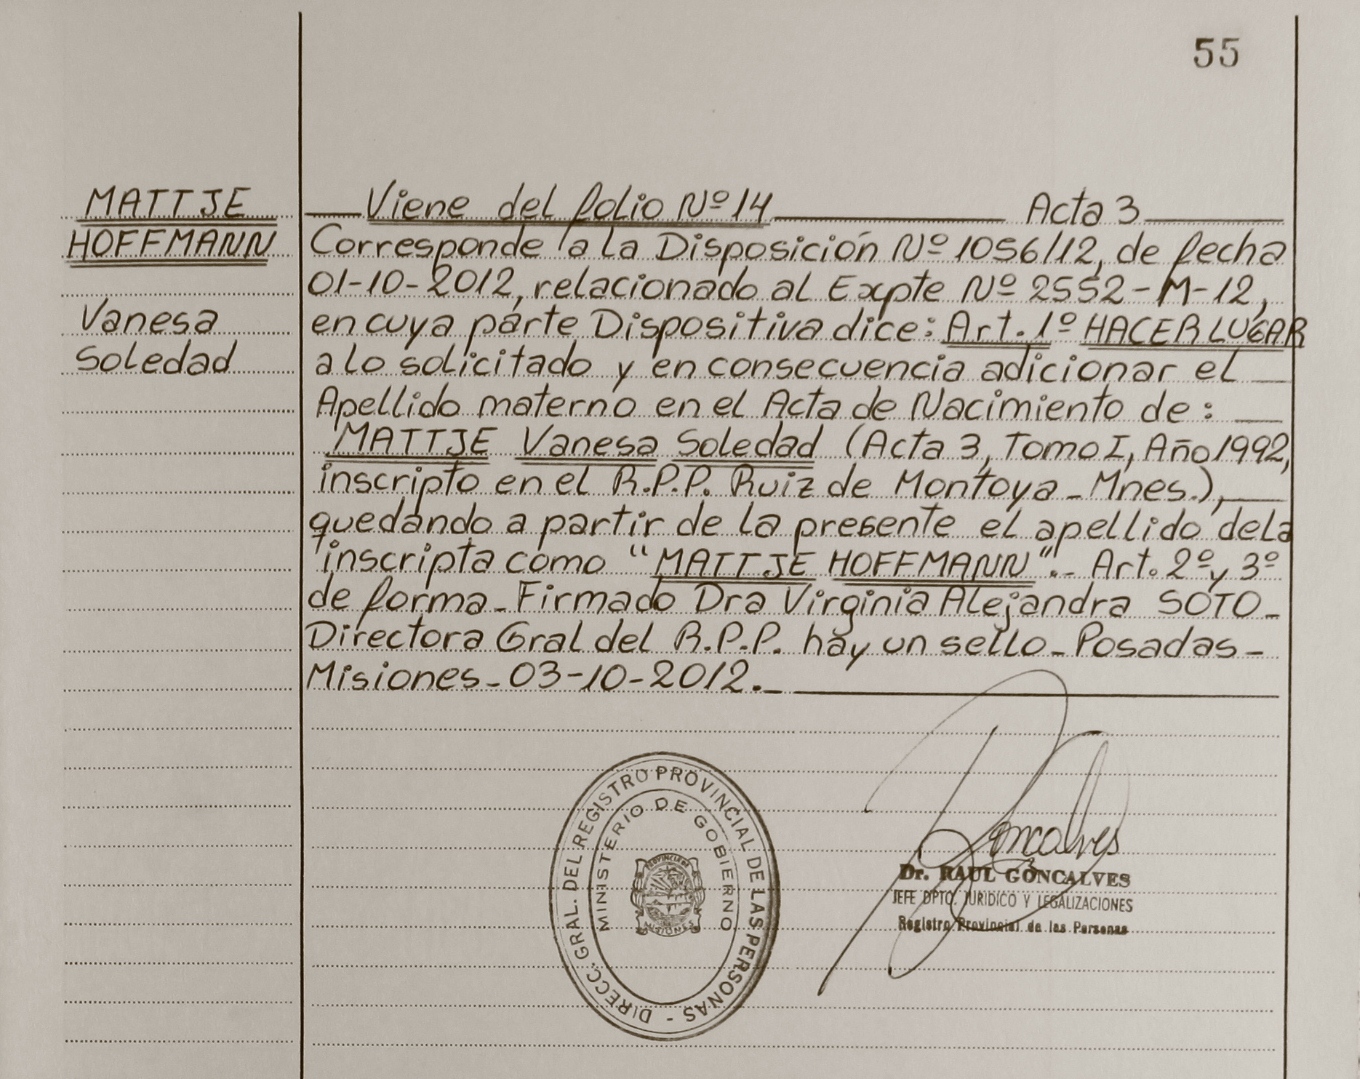 55
MATTJE
HOFFMANN
Vanesa
Soledad
Viene del folio Nº 14 Acta 3
Corresponde a la Disposición Nº 1056/12, de fecha
01-10-2012, relacionado al Expte Nº 2552-M-12,
en cuya parte Dispositiva dice: Art. 1º HACER LUGAR
a lo solicitado y en consecuencia adicionar el
Apellido materno en el Acta de Nacimiento de:
MATTJE Vanesa Soledad (Acta 3, Tomo I, Año 1992,
inscripto en el R.P.P. Ruiz de Montoya - Mnes.),
quedando a partir de la presente el apellido dela
inscripta como "MATTJE HOFFMANN".- Art. 2º y 3º
de forma - Firmado Dra Virginia Alejandra SOTO -
Directora Gral del R.P.P. hay un sello - Posadas -
Misiones - 03-10-2012.-
DIRECC. GRAL. DEL REGISTRO PROVINCIAL DE LAS PERSONAS -
MINISTERIO DE GOBIERNO
PROVINCIA DE
MISIONES
Goncalves
Dr. RAUL GONCALVES
JEFE DPTO. JURIDICO Y LEGALIZACIONES
Registro Provincial de las Personas